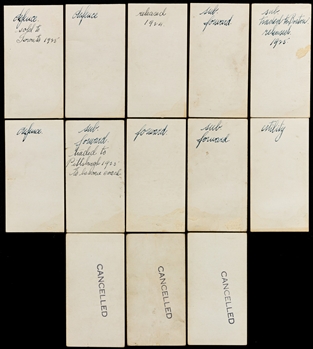 defence
sold to
Toronto 1925
defence
released
1924
sub
forward
sub
traded to Boston
released
1925
defence
sub
forward
traded to
Pittsburgh 1925
forward
sub
forward
utility
CANCELLED
CANCELLED
CANCELLED